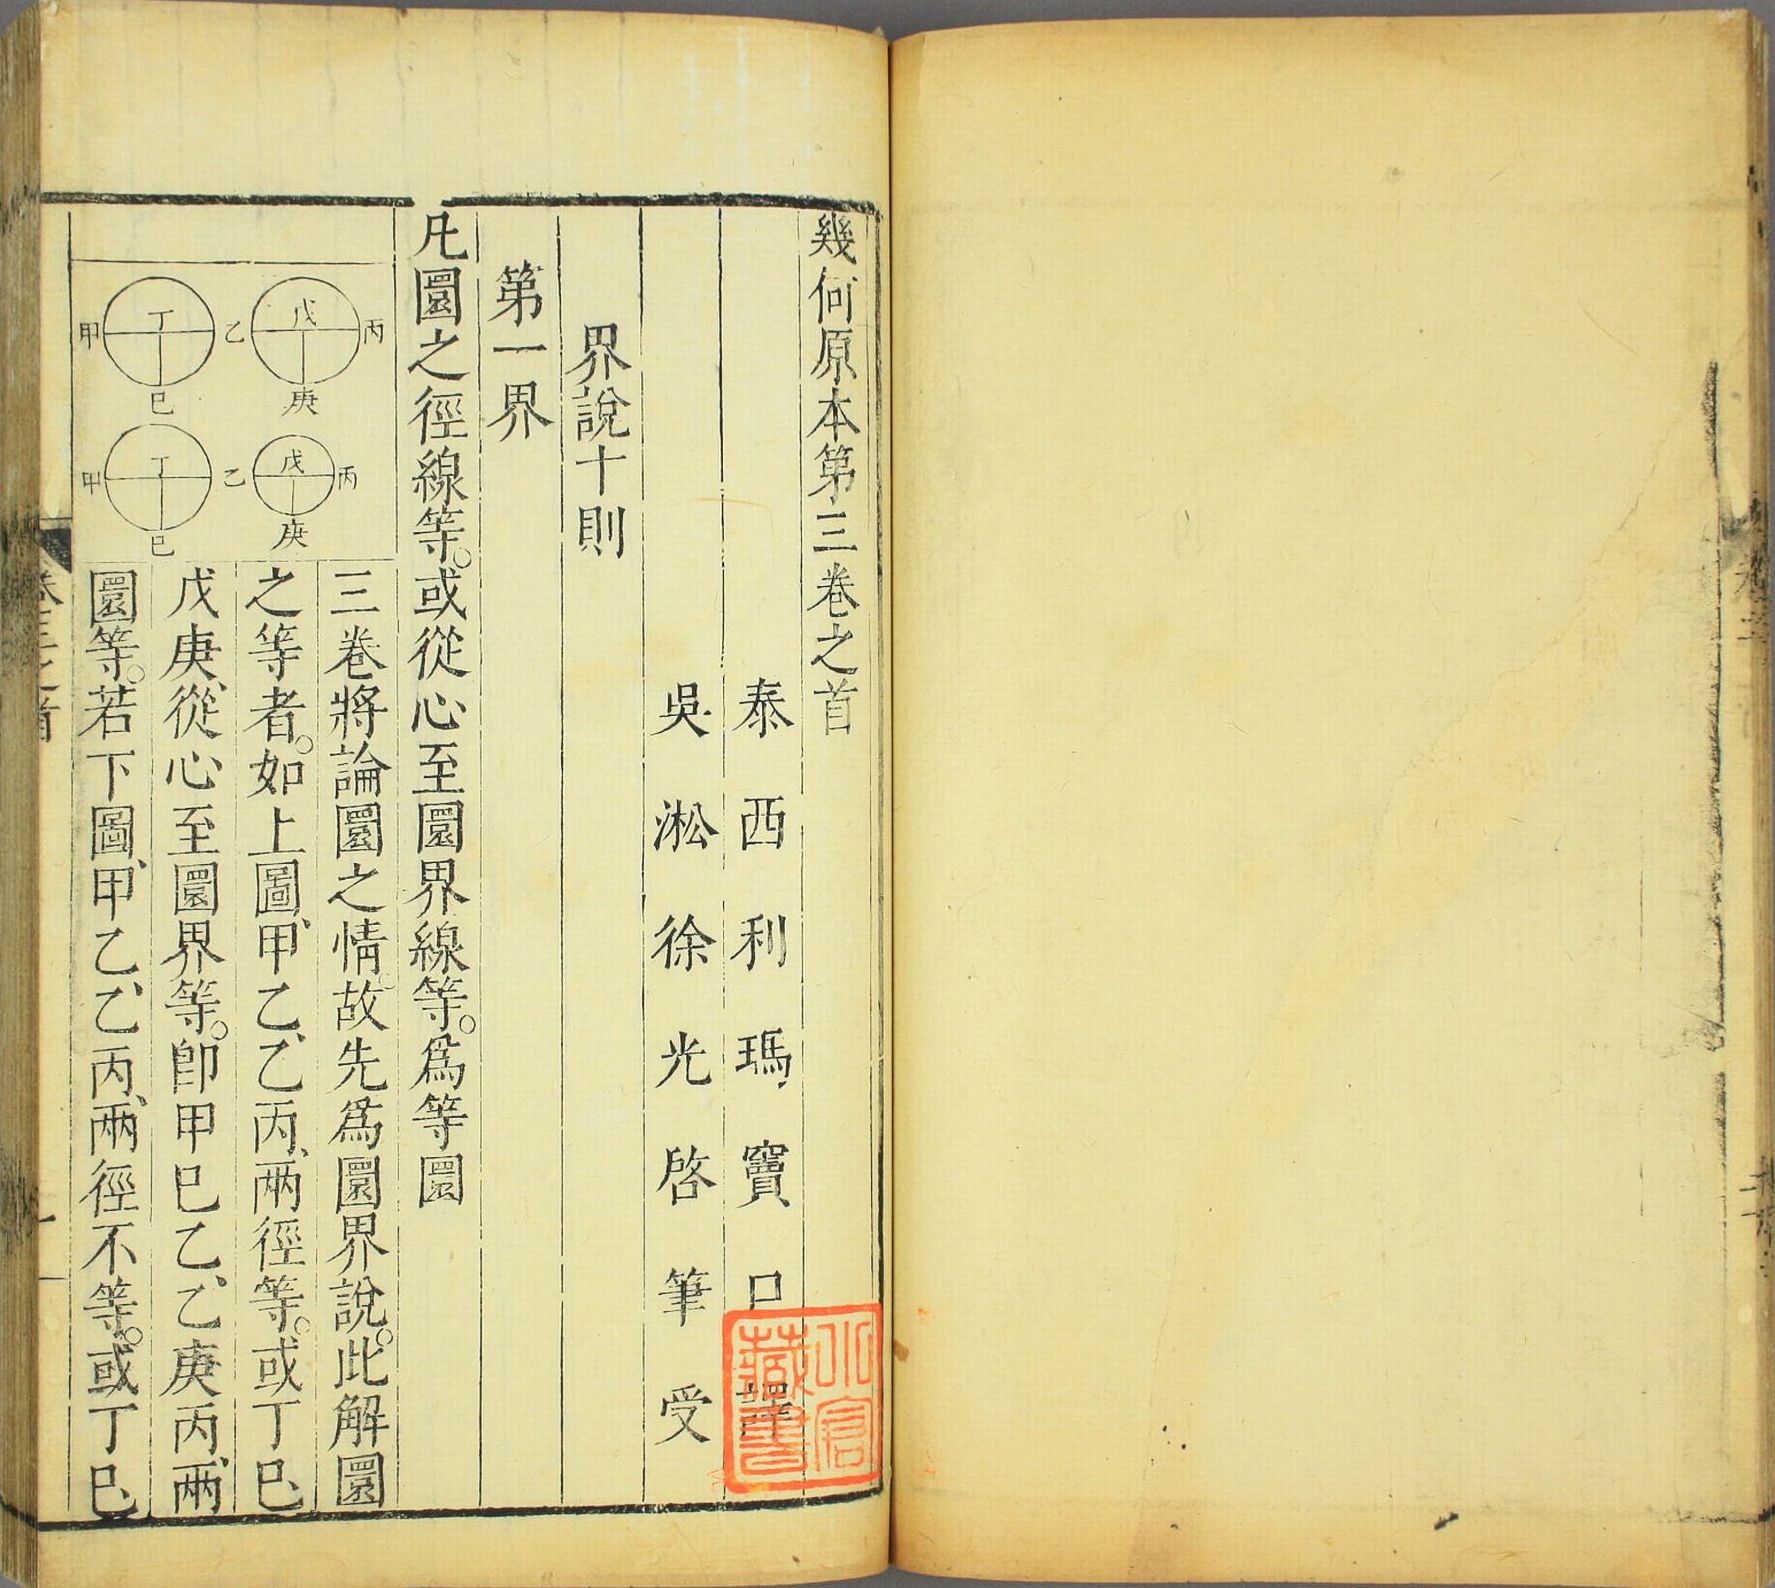 幾何原本第三卷之首
泰西利瑪竇口譯
吳淞徐光啓筆受
界說十則
第一界
凡圜之徑線等。或從心至圜界線等。爲等圜
三卷將論圜之情故先爲圜界說。此解圜
之等者。如上圖、甲乙、乙丙、兩徑等。或丁巳、
戊庚、從心至圜界等。卽甲巳乙、乙庚丙、兩
圜等。若下圖、甲乙、乙丙、兩徑不等。或丁巳、
丙
戊
庚
乙
丁
甲
巳
丙
戊
庚
乙
丁
甲
巳
小倉
藏書